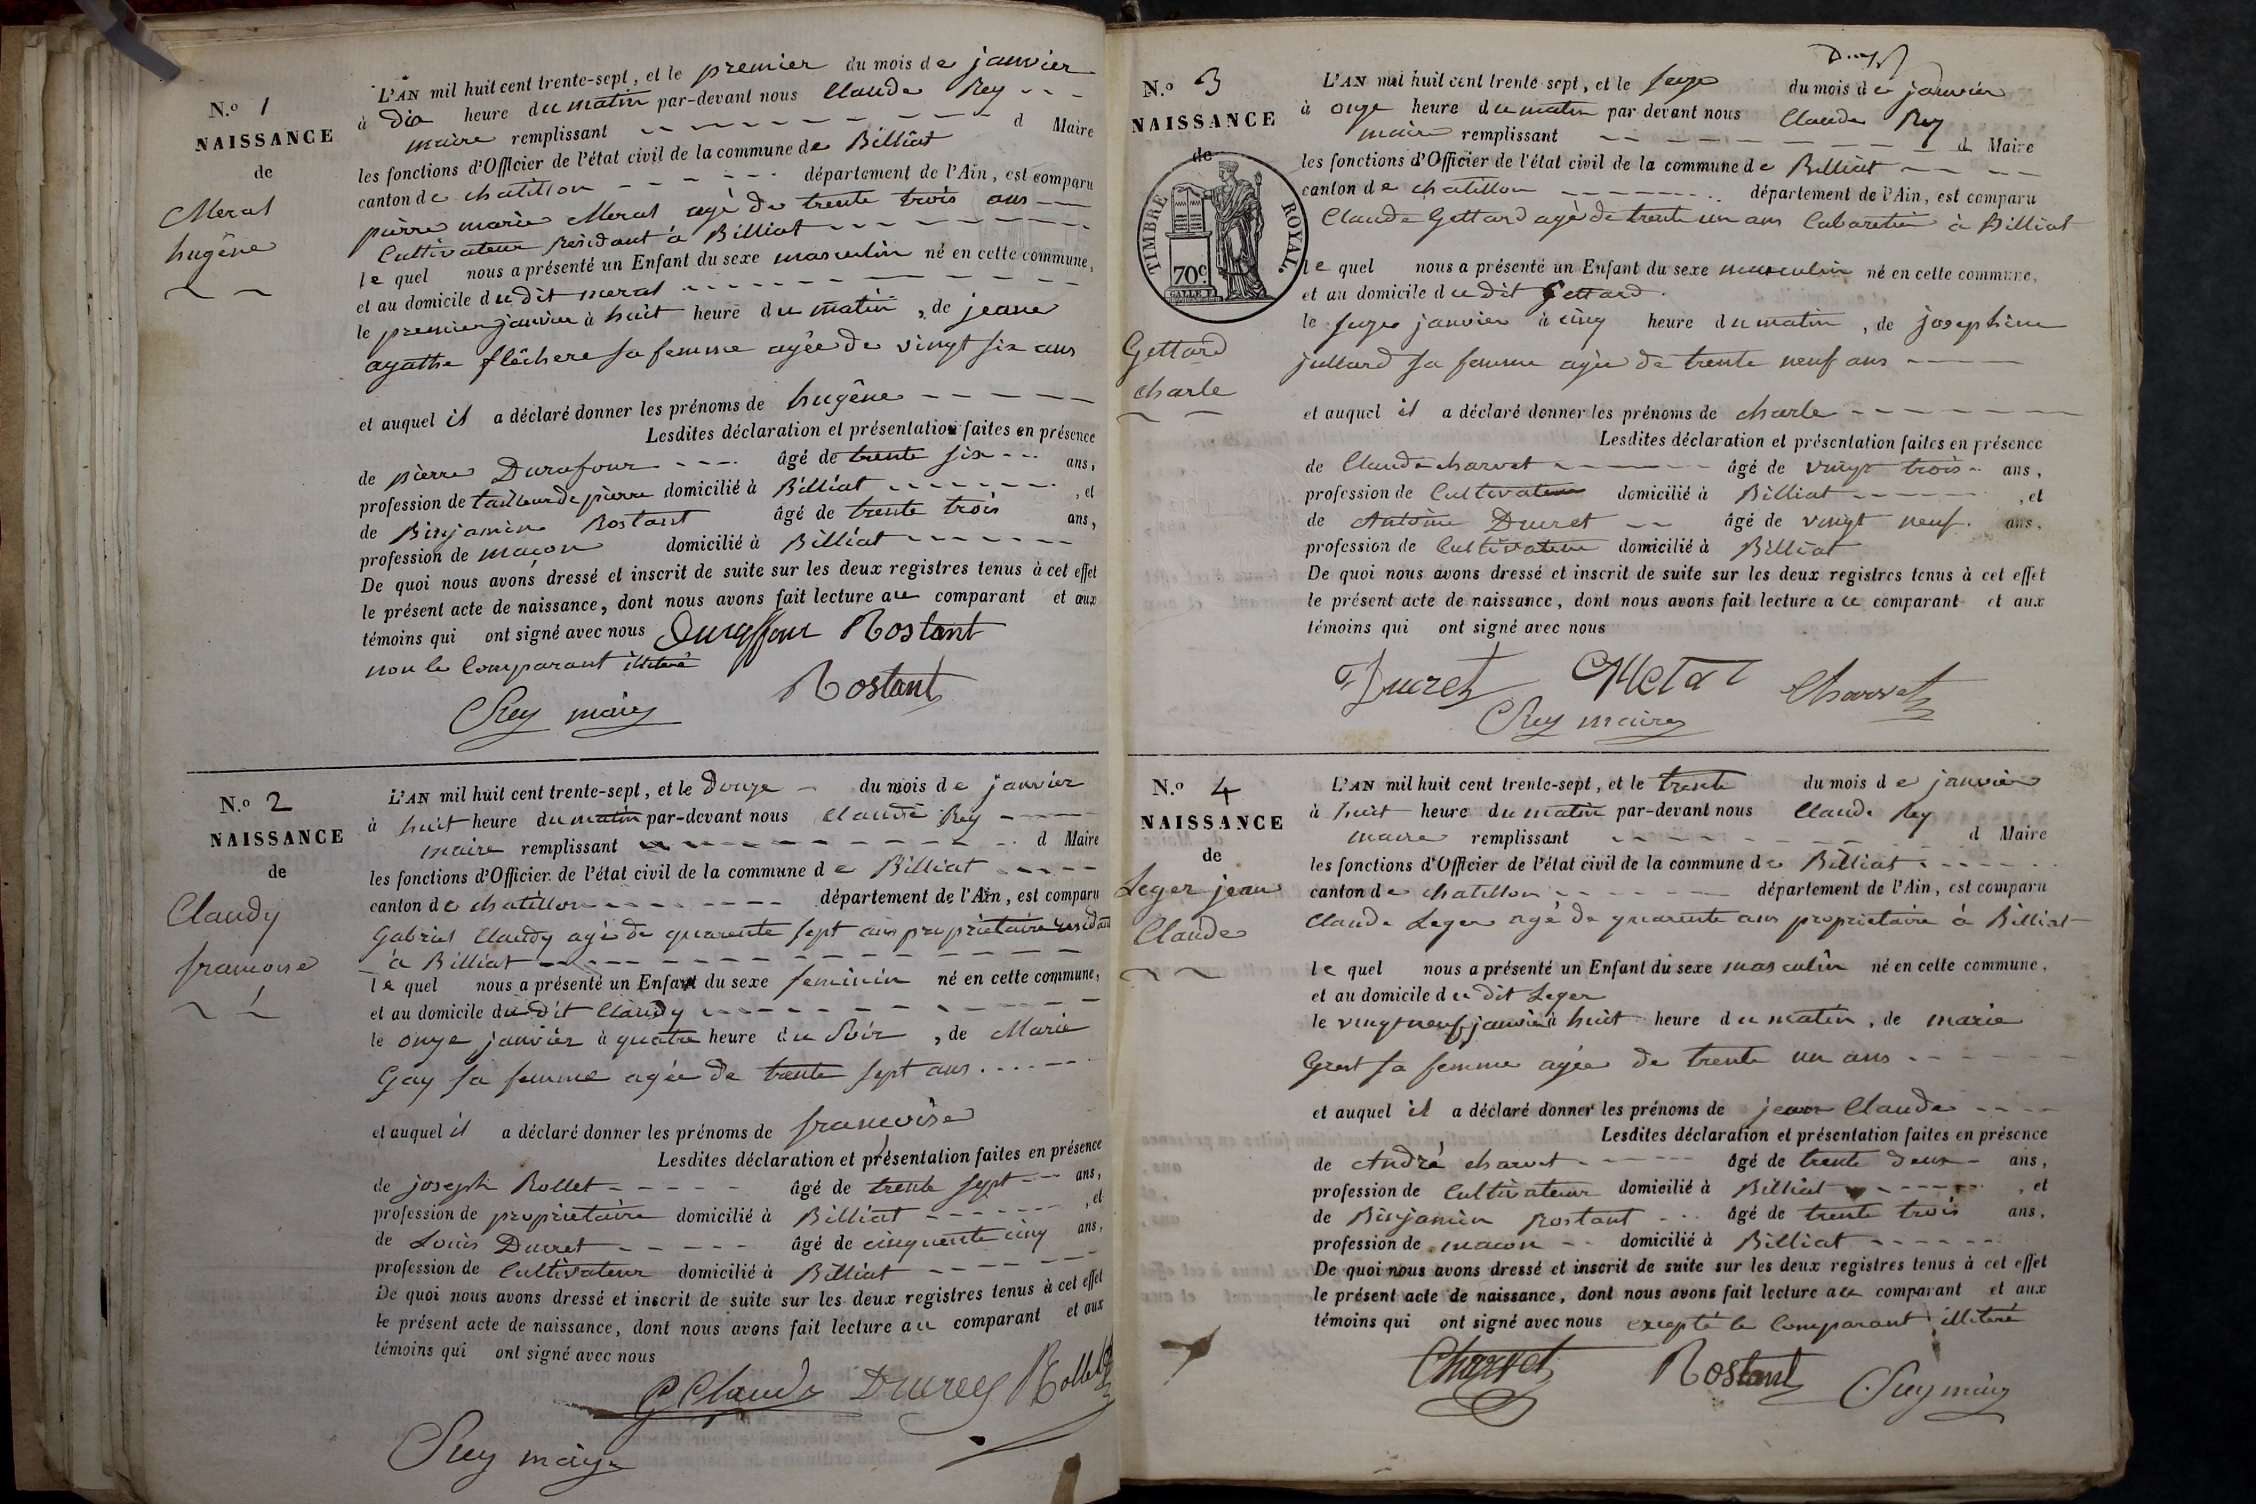 N.º 1
NAISSANCE
de
Meral
hugêne
L'AN mil huit cent trente-sept, et le premier du mois de janvier
à dix heure du matin par-devant nous Claude Rey
maire remplissant d Maire
les fonctions d'Officier de l'état civil de la commune de Billiat
canton de chatillon département de l'Ain, est comparu
pierre marie Meral agé de trente trois ans
Cultivateur residant à Billiat
le quel nous a présenté un Enfant du sexe masculin né en cette commune,
et au domicile du dit meral
le premier janvier à huit heure du matin, de jeane
agathe flêchere sa femme agée de vingt six ans
et auquel il a déclaré donner les prénoms de hugêne
Lesdites déclaration et présentation faites en présence
de pierre Durafour âgé de trente six ans,
profession de tailleur de pierre domicilié à Billiat, et
de Binjamin Rostant âgé de trente trois ans,
profession de maçon domicilié à Billiat
De quoi nous avons dressé et inscrit de suite sur les deux registres tenus à cet effet
le présent acte de naissance, dont nous avons fait lecture au comparant et aux
témoins qui ont signé avec nous Duraffour Rostant
non le Comparant illiteré
Rostant
Rey maire
N.º 2
NAISSANCE
de
Claudy
francoise
L'AN mil huit cent trente-sept, et le douze du mois de janvier
à huit heure du matin par-devant nous Claude Rey
maire remplissant d Maire
les fonctions d'Officier de l'état civil de la commune de Billiat
canton de chatillon département de l'Ain, est comparu
Gabriel Claudy agé de quarente sept ans propriétaire residant
à Billiat
le quel nous a présenté un Enfant du sexe feminin né en cette commune,
et au domicile du dit Claudy
le onze janvier à quatre heure du soir, de Marie
Gay sa femme agée de trente sept ans
et auquel il a déclaré donner les prénoms de francoise
Lesdites déclaration et présentation faites en présence
de joseph Rollet âgé de trente sept ans,
profession de proprietaire domicilié à Billiat, et
de Louis Ducret âgé de cinquente cinq ans,
profession de Cultivateur domicilié à Billiat
De quoi nous avons dressé et inscrit de suite sur les deux registres tenus à cet effet
le présent acte de naissance, dont nous avons fait lecture au comparant et aux
témoins qui ont signé avec nous
G Claude Ducret Rollet
Rey maire
N.º 3
NAISSANCE
de
TIMBRE ROYAL
70c
Gettard
charle
L'AN mil huit cent trente-sept, et le seize du mois de janvier
à onze heure du matin par devant nous Claude Rey
maire remplissant d Maire
les fonctions d'Officier de l'état civil de la commune de Billiat
canton de chatillon département de l'Ain, est comparu
Claude Gettard agé de trente un ans Cabaretier à Billiat
le quel nous a présenté un Enfant du sexe masculin né en cette commune,
et au domicile du dit Gettard
le seize janvier à cinq heure du matin, de josephine
jullard sa femme agée de trente neuf ans
et auquel il a déclaré donner les prénoms de charle
Lesdites déclaration et présentation faites en présence
de Claude charvet âgé de vingt trois ans,
profession de Cultivateur domicilié à Billiat, et
de Antoine Ducret âgé de vingt neuf ans,
profession de Cultivateur domicilié à Billiat
De quoi nous avons dressé et inscrit de suite sur les deux registres tenus à cet effet
le présent acte de naissance, dont nous avons fait lecture au comparant et aux
témoins qui ont signé avec nous
Ducret Charvet
Rey maire
N.º 4
NAISSANCE
de
Leger jean
Claude
L'AN mil huit cent trente-sept, et le trente du mois de janvier
à huit heure du matin par-devant nous Claude Rey
maire remplissant d Maire
les fonctions d'Officier de l'état civil de la commune de Billiat
canton de chatillon département de l'Ain, est comparu
Claude Leger agé de quarente ans proprietaire à Billiat
le quel nous a présenté un Enfant du sexe masculin né en cette commune,
et au domicile du dit Leger
le vingt neuf janvier à huit heure du matin, de marie
Grost sa femme agée de trente un ans
et auquel il a déclaré donner les prénoms de jean Claude
Lesdites déclaration et présentation faites en présence
de André charvet âgé de trente deux ans,
profession de Cultivateur domicilié à Billiat, et
de Binjamin Rostant âgé de trente trois ans,
profession de macon domicilié à Billiat
De quoi nous avons dressé et inscrit de suite sur les deux registres tenus à cet effet
le présent acte de naissance, dont nous avons fait lecture au comparant et aux
témoins qui ont signé avec nous excepté le Comparant illiteré
Charvet Rostant Rey maire